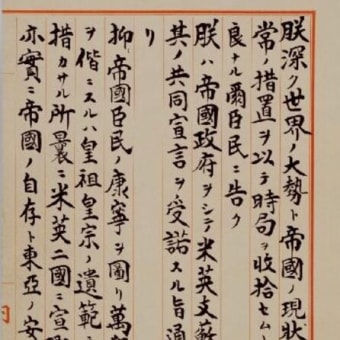 朕深ク世界ノ大勢ト帝國ノ現狀
常ノ措置ヲ以テ時局ヲ收拾セムト
良ナル爾臣民ニ告ク
朕ハ帝國政府ヲシテ米英支蘇
其ノ共同宣言ヲ受諾スル旨通
リ
抑〻帝國臣民ノ康寧ヲ圖リ萬
ヲ偕ニスルハ皇祖皇宗ノ遺範ニ
措カサル所曩ニ米英二國ニ宣
亦實ニ帝國ノ自存ト東亞ノ安